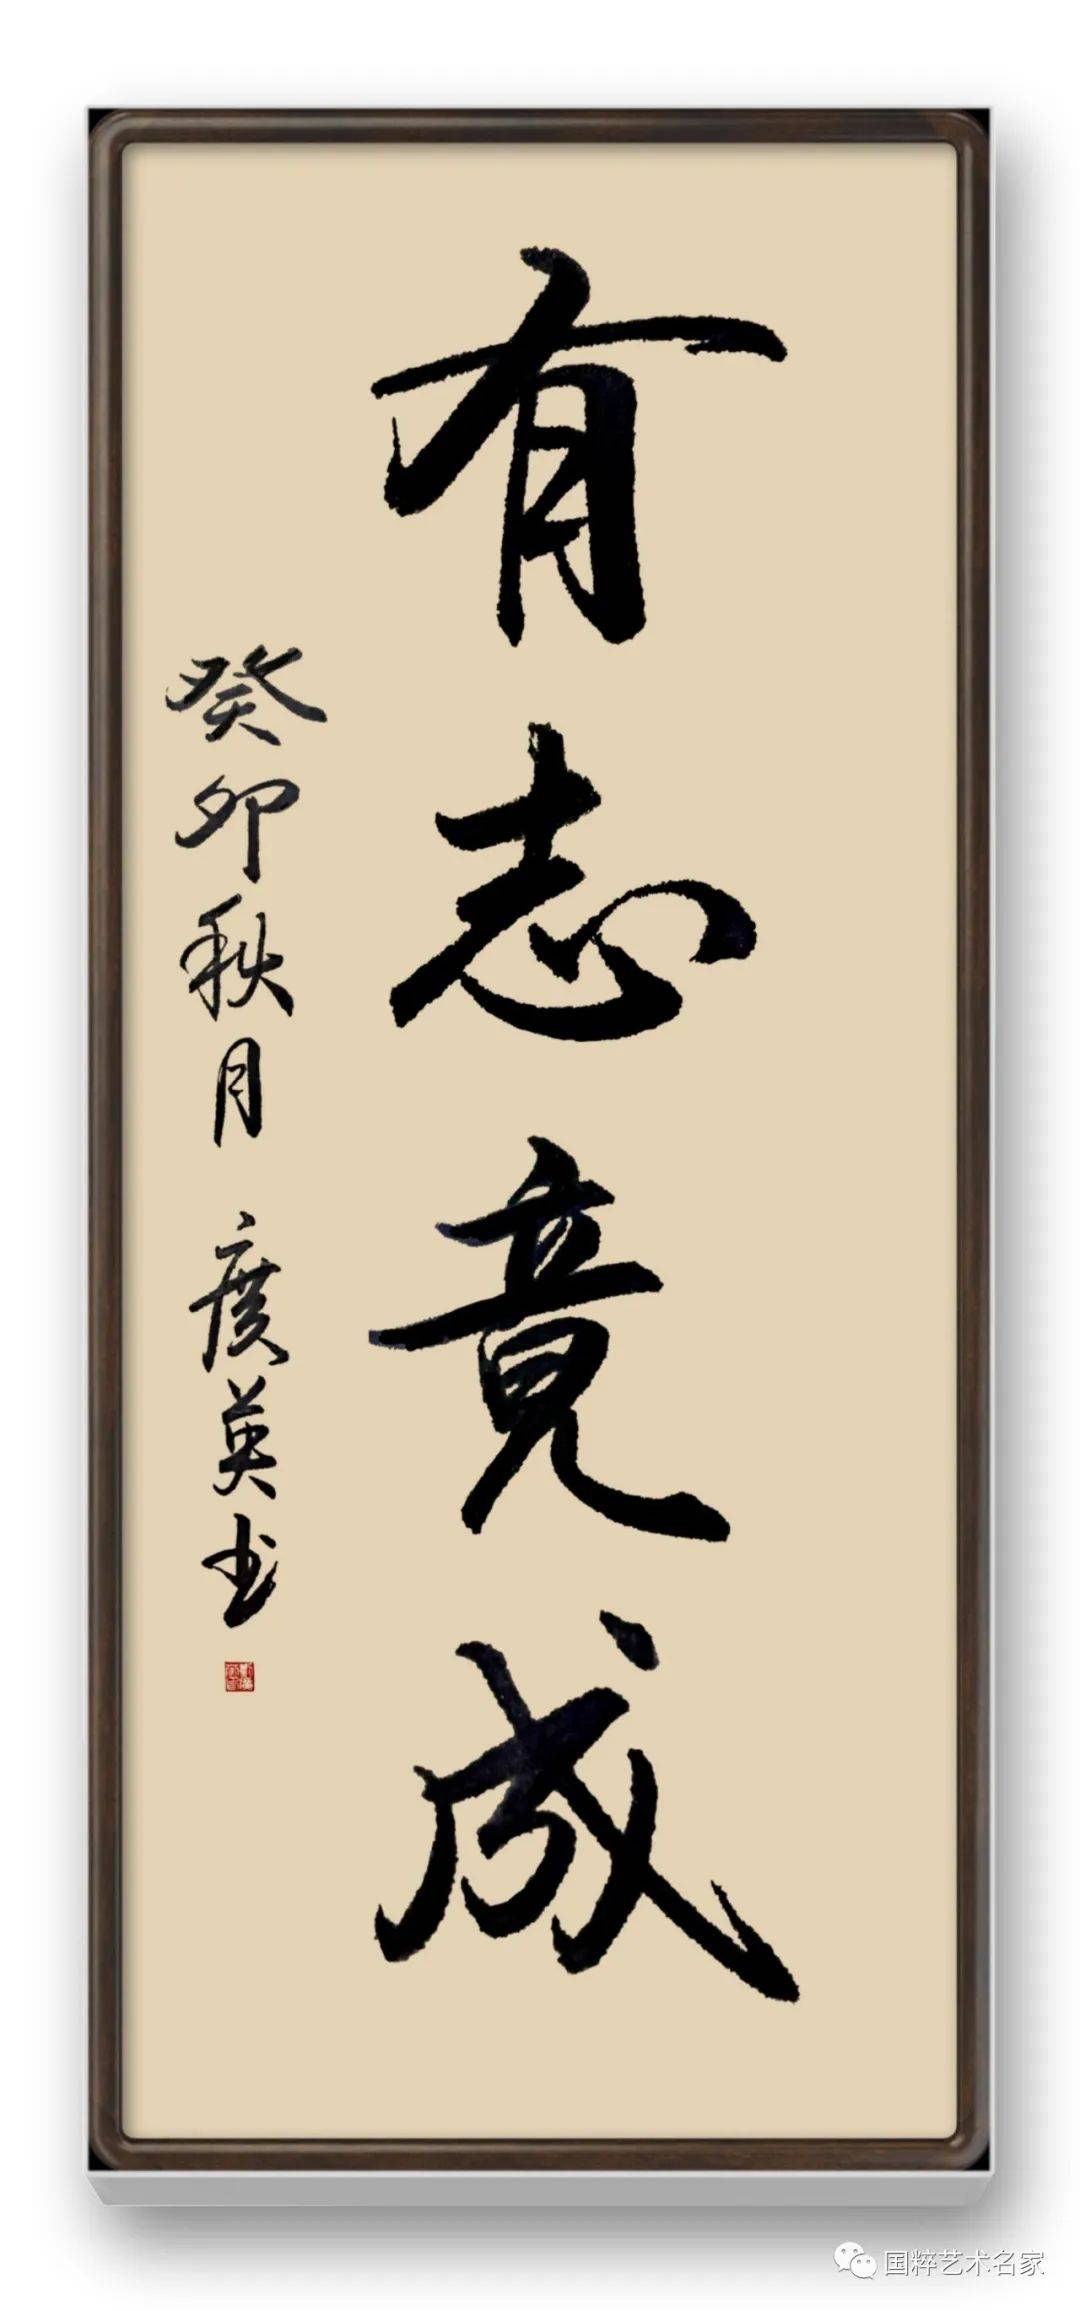 有志竟成
癸卯秋月 广英书
国粹艺术名家